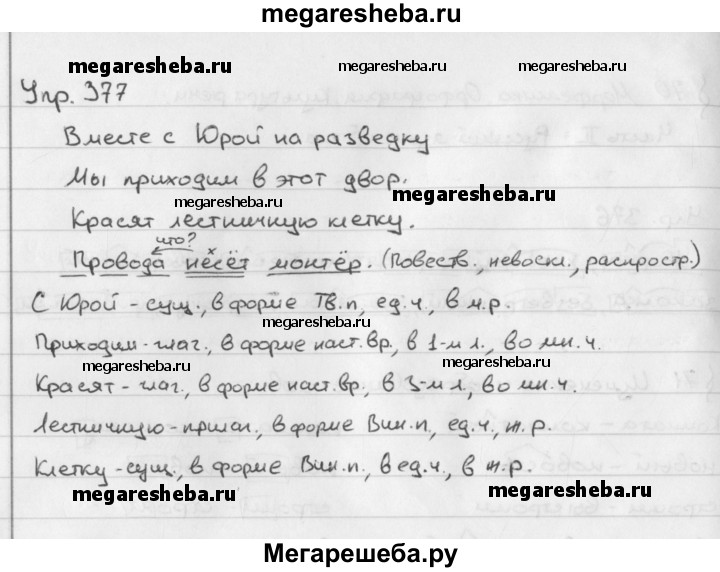 megaresheba.ru
megaresheba.ru
megaresheba.ru
megaresheba.ru
Упр. 377
Вместе с Юрой на разведку
Мы приходим в этот двор.
megaresheba.ru
megaresheba.ru
Красят лестничную клетку.
что?
х
Провода несёт монтёр. (Повеств., невоскл., распростр.)
С Юрой - сущ., в форме Тв.п, ед.ч, в м.р.
megaresheba.ru
Приходим - глаг., в форме наст. вр, в 1-м л., во мн. ч.
megaresheba.ru
megaresheba.ru
Красят - глаг., в форме наст. вр, в 3-м л, во мн. ч.
Лестничную - прилаг., в форме Вин.п, ед.ч, ж.р.
Клетку - сущ., в форме Вин.п., в ед.ч, в ж.р.
megaresheba.ru
megaresheba.ru
Мегарешеба.ру